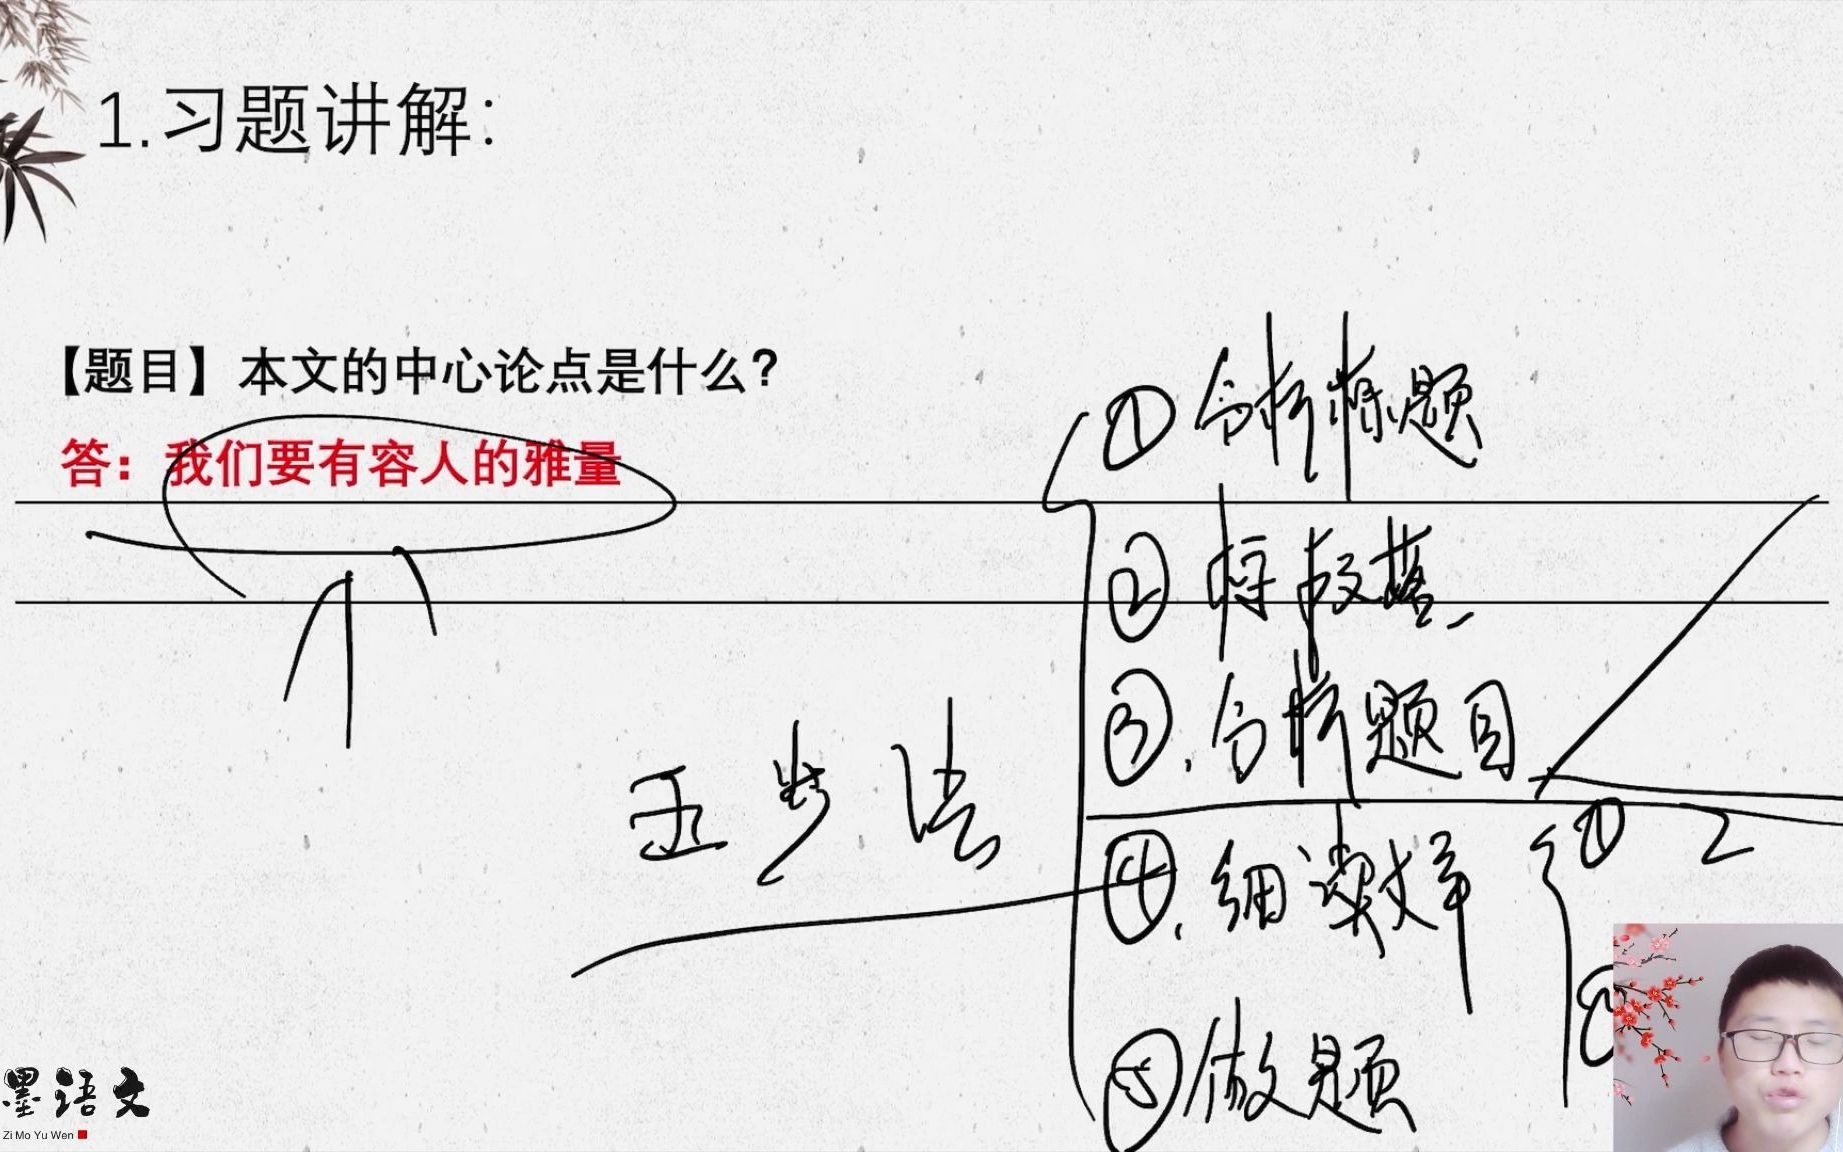 1.习题讲解：
【题目】本文的中心论点是什么？
答：我们要有容人的雅量
① 分析标题
② 标段落
③.分析题目
五步法
④.细读文章
① 2
⑤做题
墨语文
Zi Mo Yu Wen